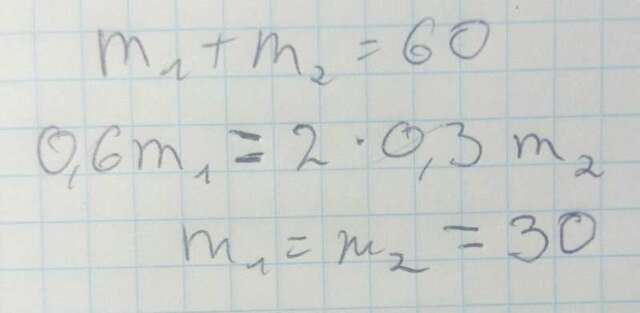 m₁ + m₂ = 60
0,6m₁ = 2 · 0,3 m₂
m₁ = m₂ = 30